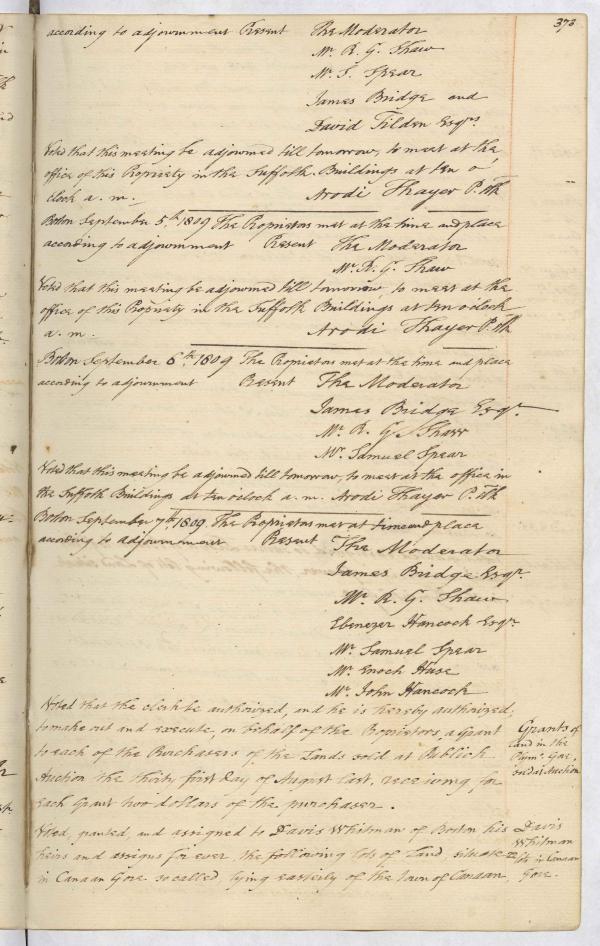 373
according to adjournment Present The Moderator
Mr. R. G. Shaw
Mr. S. Spear
James Bridge and
David Tilden Esqrs
Voted that this meeting be adjourned till tomorrow, to meet at the
office of this Propriety in the Suffolk Buildings at ten o'
clock a. m. Arodi Thayer P. Clk
Boston September 5th 1809 The Proprietors met at the time and place
according to adjournment Present The Moderator
Mr. R. G. Shaw
Voted that this meeting be adjourned till tomorrow, to meet at the
office of this Propriety in the Suffolk Buildings at ten oclock
a. m. Arodi Thayer P. Clk
Boston September 6th 1809 The Proprietors met at the time and place
according to adjournment Present The Moderator
James Bridge Esqr.
Mr. R. G. Shaw
Mr. Samuel Spear
Voted that this meeting be adjourned till tomorrow, to meet at the office in
the Suffolk Buildings at ten oclock a. m. Arodi Thayer P. Clk
Boston September 7th 1809. The Proprietors met at time and place
according to adjournment Present The Moderator
James Bridge Esqr.
Mr. R. G. Shaw
Ebenezer Hancock Esqr.
Mr. Samuel Spear
Mr. Enoch Huse
Mr. John Hancock
Voted that the clerk be authorized, and he is hereby authorized,
to make out and execute, on behalf of the Proprietors, a Grant
to each of the Purchasers of the Lands sold at Publick
Auction the thirty first day of August last, receiving, for
each Grant two dollars of the purchaser.
Grants of
Land in the
Plymo. Gore,
sold at Auction
Voted, granted, and assigned to Davis Whitman of Boston his
heirs and assigns for ever, the following lots of Land, situate
in Canaan Gore so called, lying easterly of the town of Canaan,
Davis
Whitman
lots in Canaan
Gore.